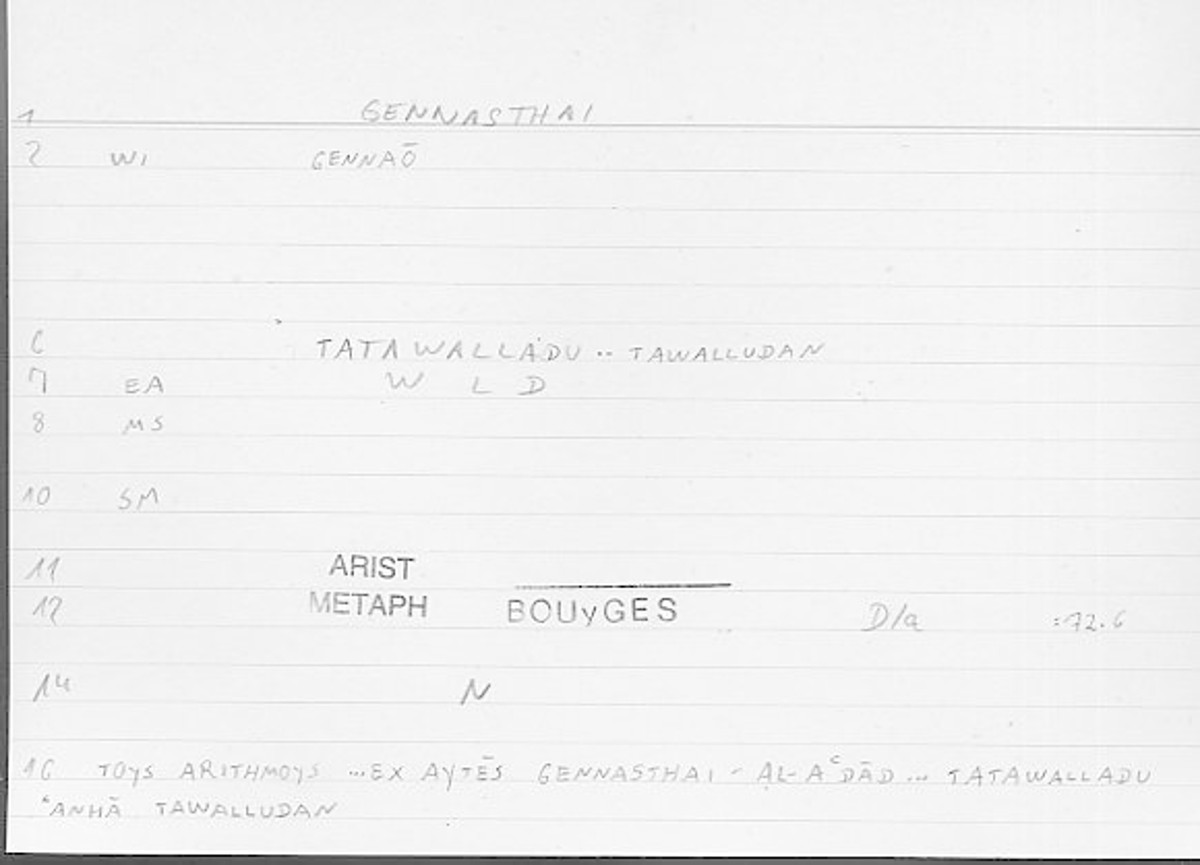 1 GENNASTHAI
2 WI GENNAŌ
6 TATAWALLADU .. TAWALLUDAN
7 EA W L D
8 MS
10 SM
11 ARIST
12 METAPH BOUyGES D/a :72.6
14 N
16 TOYS ARITHMOYS ...EX AYTĒS GENNASTHAI - AL-AʿDĀD ... TATAWALLADU
ʿANHĀ TAWALLUDAN